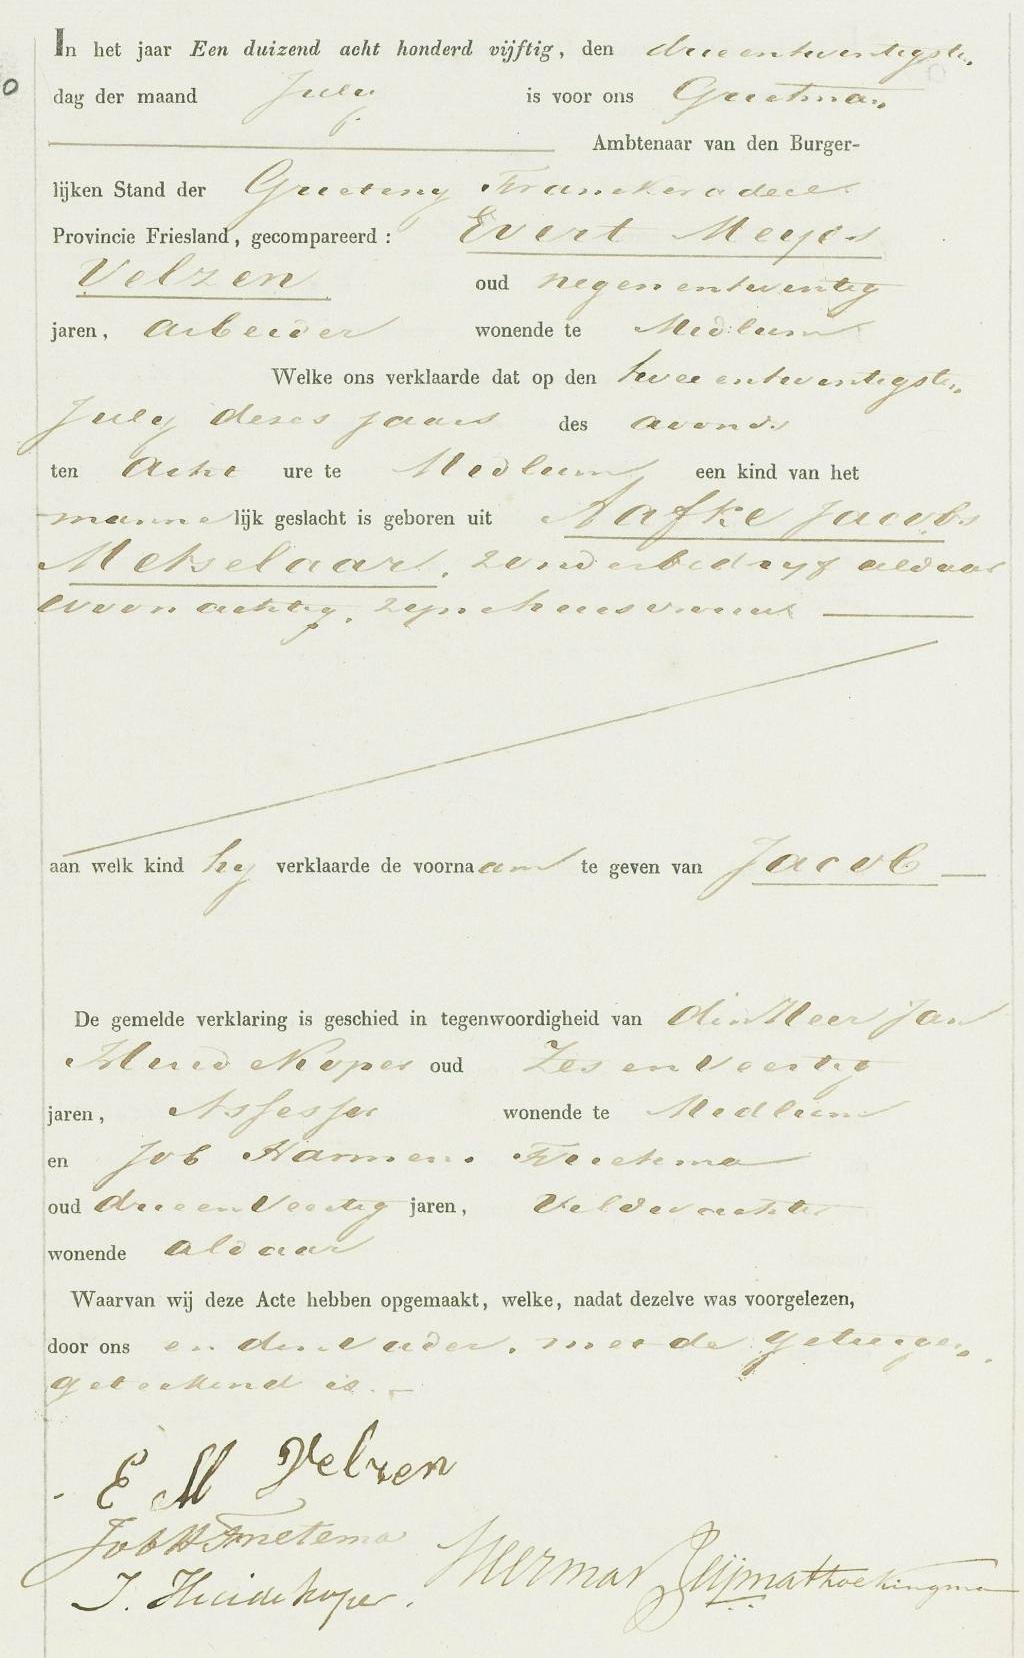 In het jaar Een duizend acht honderd vijftig, den drieentwintigsten
dag der maand July is voor ons Grietman
Ambtenaar van den Burger-
lijken Stand der Grieteny Franekeradeel
Provincie Friesland, gecompareerd: Evert Meyes
Velzen oud negenentwintig
jaren, arbeider wonende te Midlum
Welke ons verklaarde dat op den tweeentwintigsten
July dezes jaars des avonds
ten acht ure te Midlum een kind van het
mannelijk geslacht is geboren uit Aafke Jacobs
Metselaar, zonder bedryf aldaar
woonachtig, zyne huisvrouw
aan welk kind hy verklaarde de voornaam te geven van Jacob
De gemelde verklaring is geschied in tegenwoordigheid van den Heer Jan
oud Zesenveertig
jaren, Assessor wonende te Midlum
en Job Harmens Frietema
oud drieenveertig jaren, Veldwachter
wonende aldaar
Waarvan wij deze Acte hebben opgemaakt, welke, nadat dezelve was voorgelezen,
door ons en den Vader, met de getuigen,
geteekend is.
E M Velzen
Job H Frietema
J. Heidekoper.